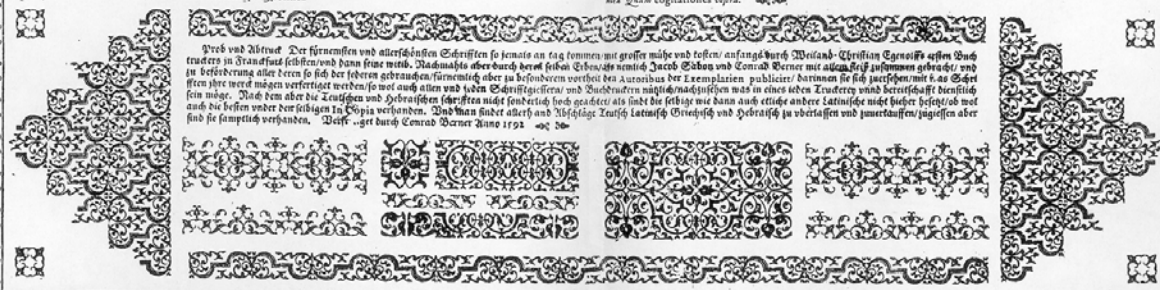 Prob vnd Abtruck Der fürnemsten vnd allerschönsten Schrifften so jemals an tag kommen/mit grosser mühe vnd kosten/ anfangs durch Weiland Christian Egenolffs ersten Buch
truckers in Franckfurt selbsten/vnd dann seine witib. Nachmahls aber durch deren selben Erben/als nemlich Jacob Sabon vnd Conrad Berner mit allem fleiß zusammen gebracht/ vnd
zu beförderung aller deren so sich der federen gebrauchen/fürnemlich aber zu besonderem vortheil den Autoribus der Exemplarien publiciert/ darinnen sie sich zuersehen/mit as Schri
fften ihre werck mögen verfertiget werden/so wol auch allen vnd jeden Schrifftgiessern/ vnd Buchdruckern nützlich/nachzusehen was in eines jeden Truckerey vnnd bereitschafft dienstlich
sein möge. Nach dem aber die Teutschen vnd Hebraischen schrifften nicht sonderlich hoch geachtet/als sindt die selbige wie dann auch etliche andere Latinische nicht hieher gesetzt/ob wol
auch die besten vnder den selbigen In Copia verhanden. Vnd man findet allerhand Abschläge Teutsch Latinisch Griechisch vnd Hebraisch zu vberlassen vnd zuuerkauffen/zugiessen aber
sind sie samptlich verhanden. get durch Conrad Berner Anno 1592